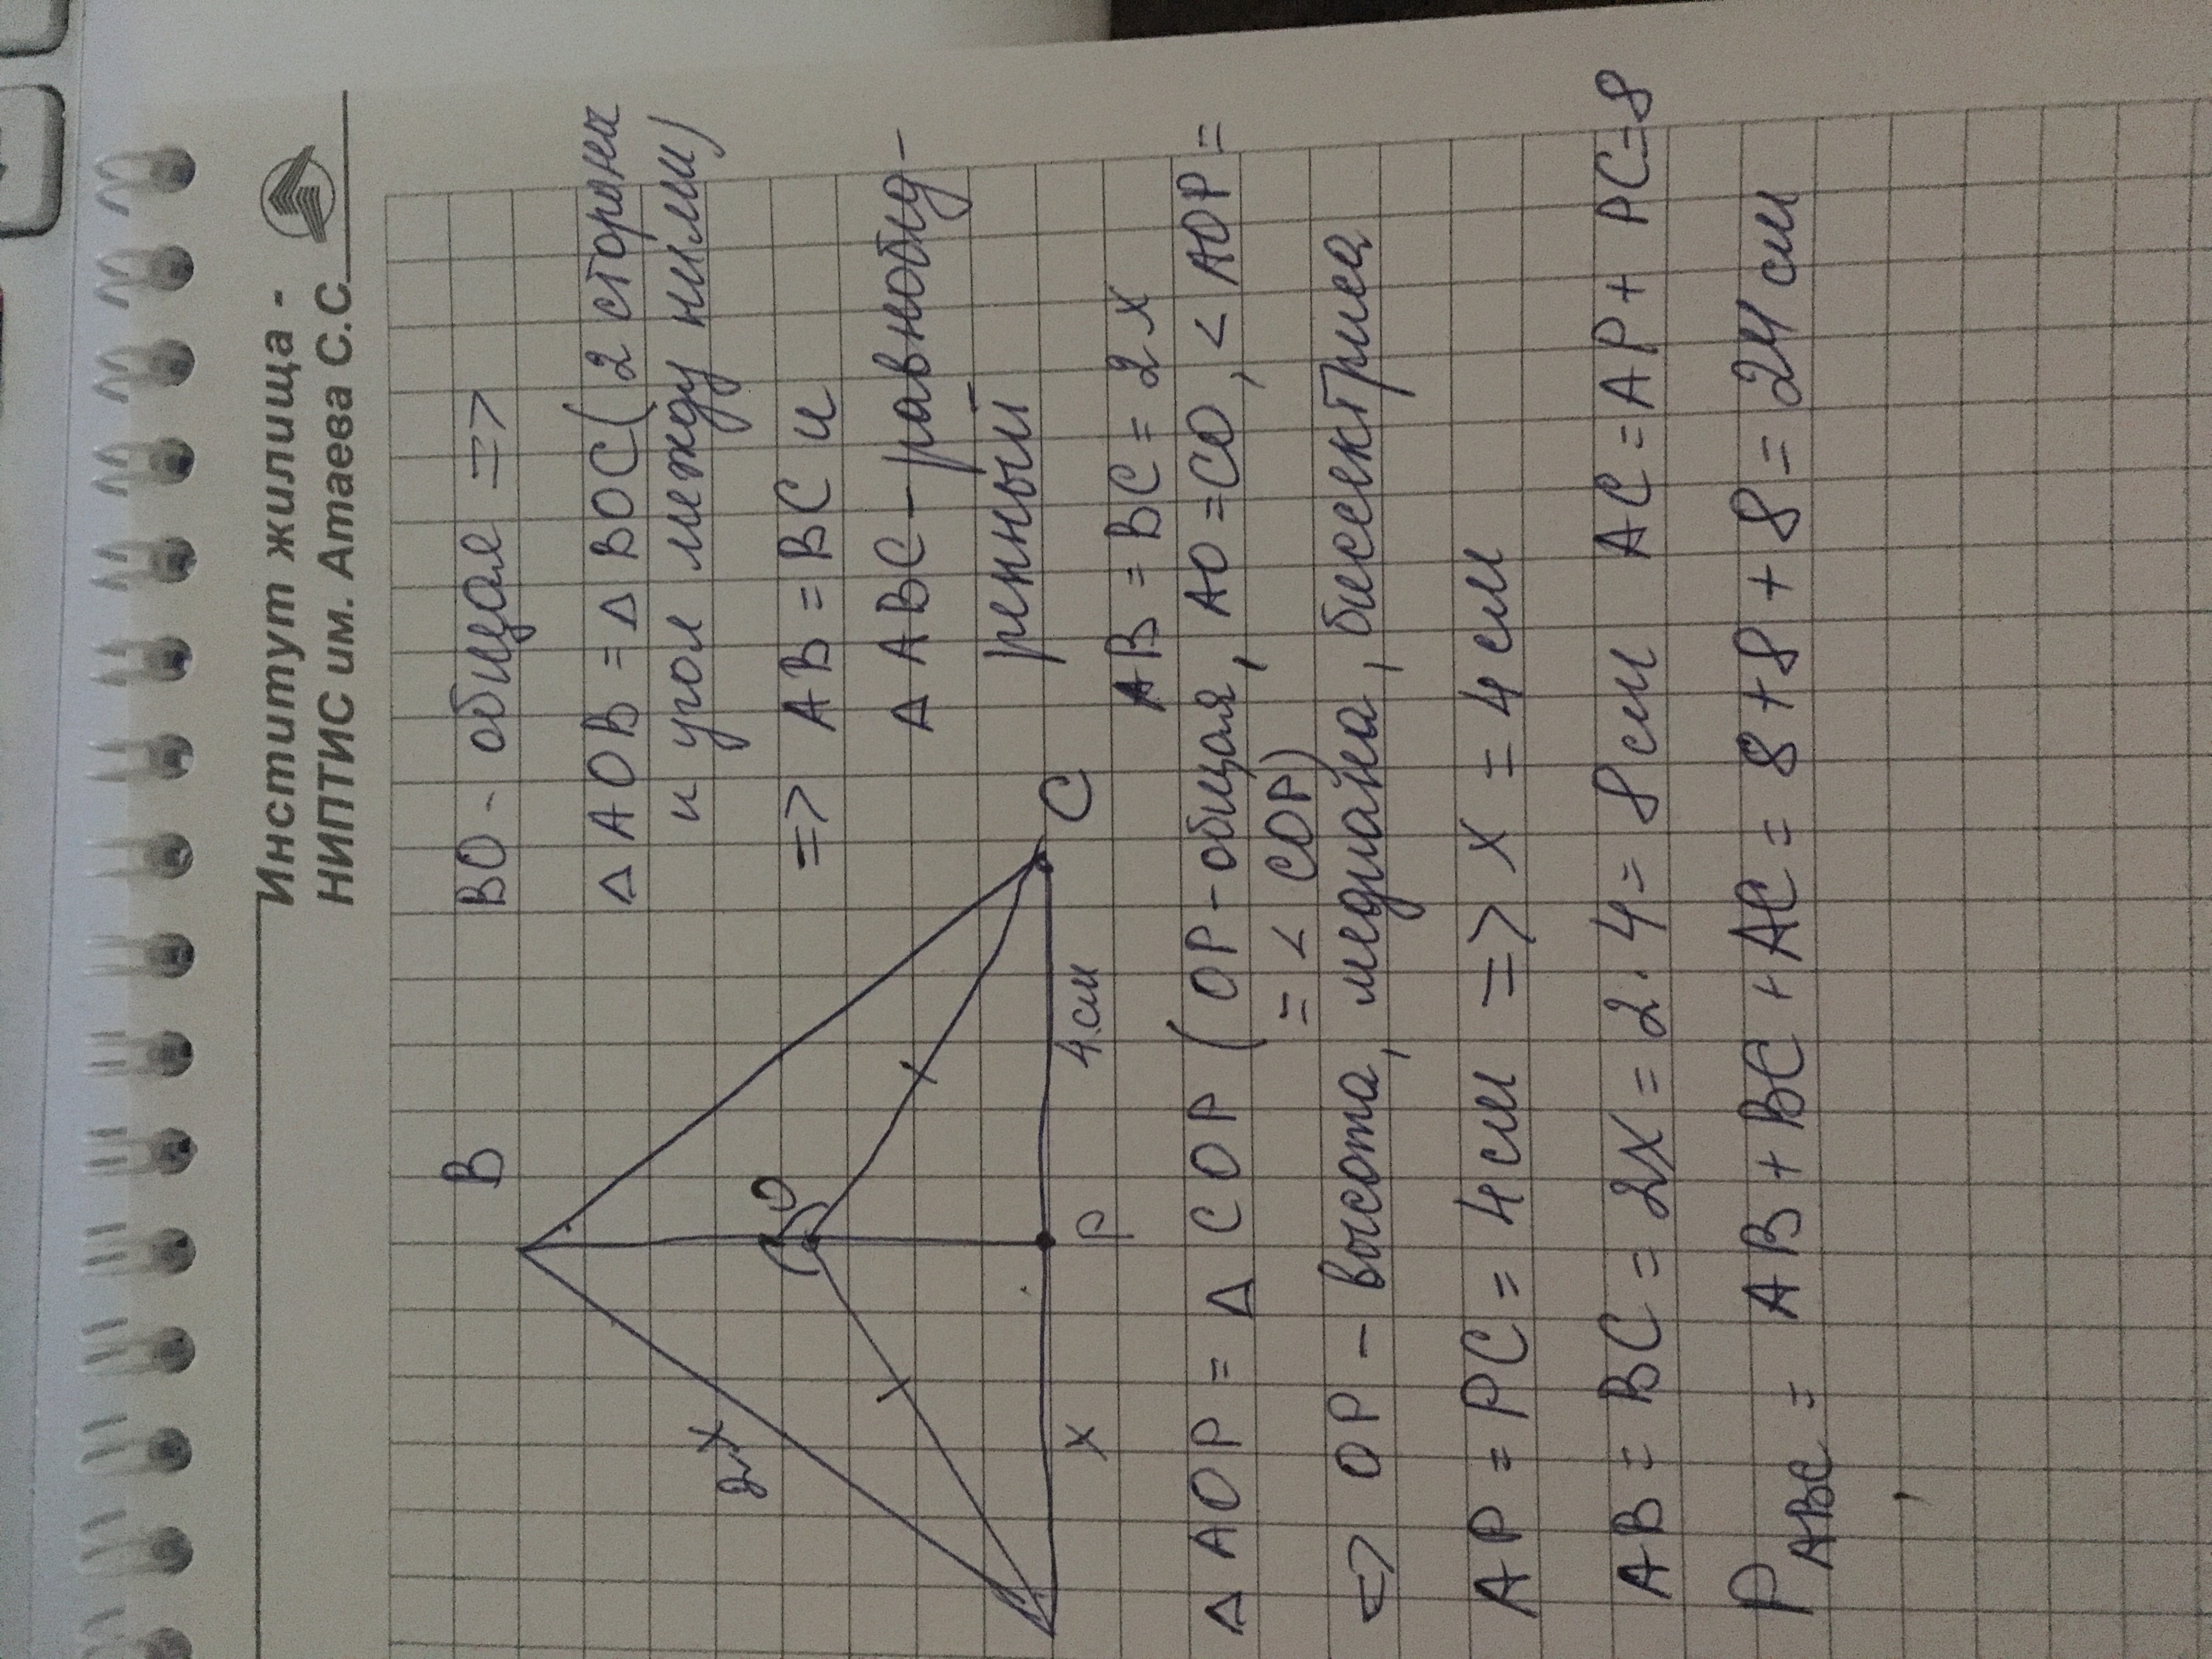 Институт жилища -
НИПТИС им. Атаева С.С.
BO - общая =>
Δ AOB = Δ BOC (2 стороны
и угол между ними)
=> AB = BC и
Δ ABC - равнобед-
ренный
AB = BC = 2x
B
O
C
P
2x
x
4 см
Δ AOP = Δ COP (OP - общая, AO = CO, < AOP =
= < COP)
=> OP - высота, медиана, биссектриса
AP = PC = 4 см => x = 4 см
AB = BC = 2x = 2 · 4 = 8 см AC = AP + PC = 8
P ABC = AB + BC + AC = 8 + 8 + 8 = 24 см